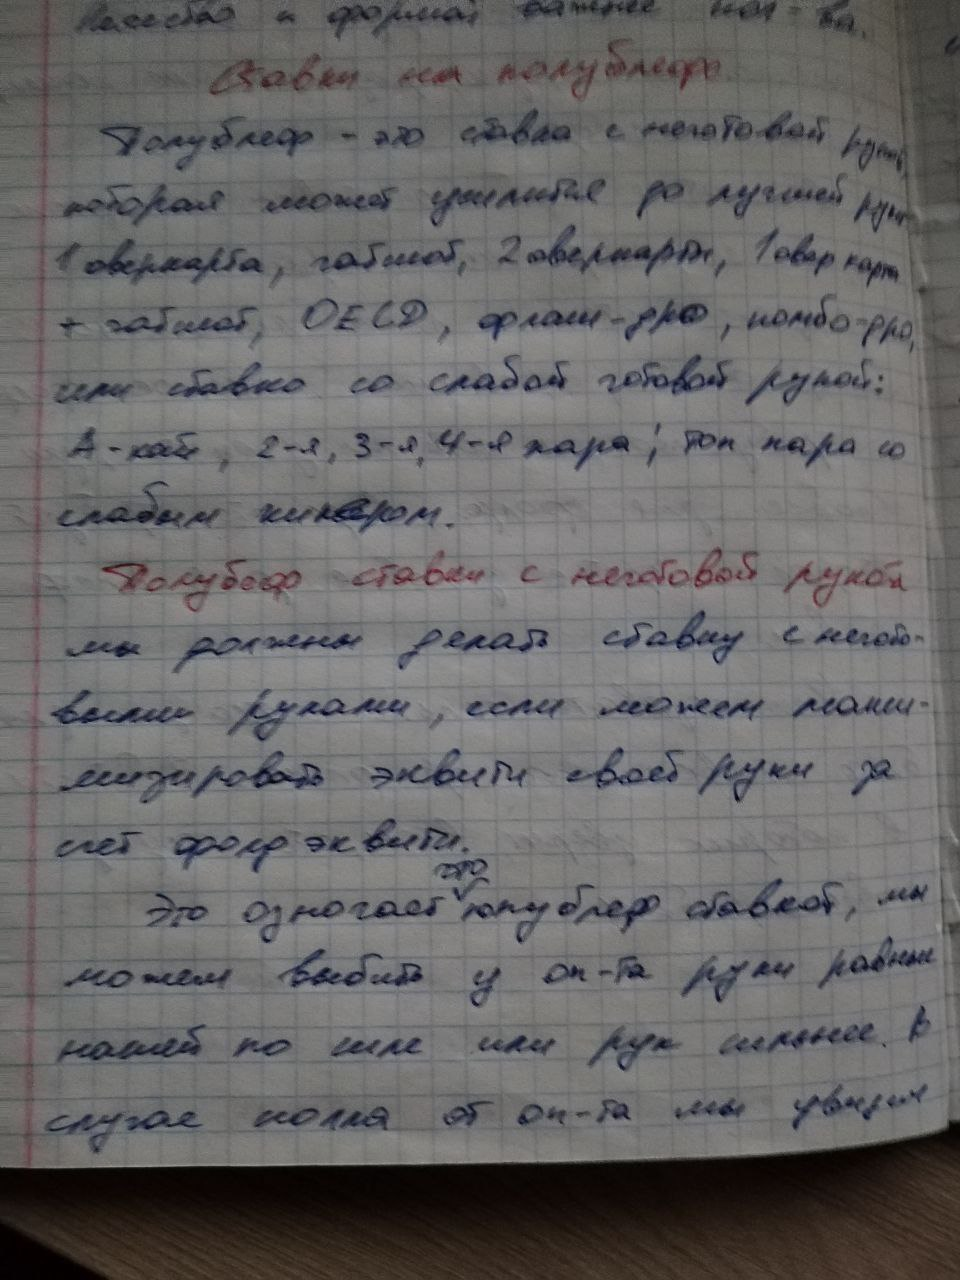 и формой важнее кол-ва.
Ставки на полублефе
Полублеф - это ставка с неготовой рукой,
которая может усилится до лучшей руки
1 оверкарта, гатшот, 2 оверкарты, 1 овер карта
+ гатшот, OESD, флаш-дро, комбо-дро,
или ставка со слабой готовой рукой:
А-хай, 2-я, 3-я, 4-я пара; топ пара со
слабым кикером.
Полубеф ставки с неготовой рукой
мы должны делать ставку с негото-
выми руками, если можем макси-
мизировать эквити своей руки за
счет фолд эквити.
Это означает что полублеф ставкой, мы
можем выбить у оп-та руки равные
нашей по силе или рук сильнее. В
случае колла от оп-та мы увидим